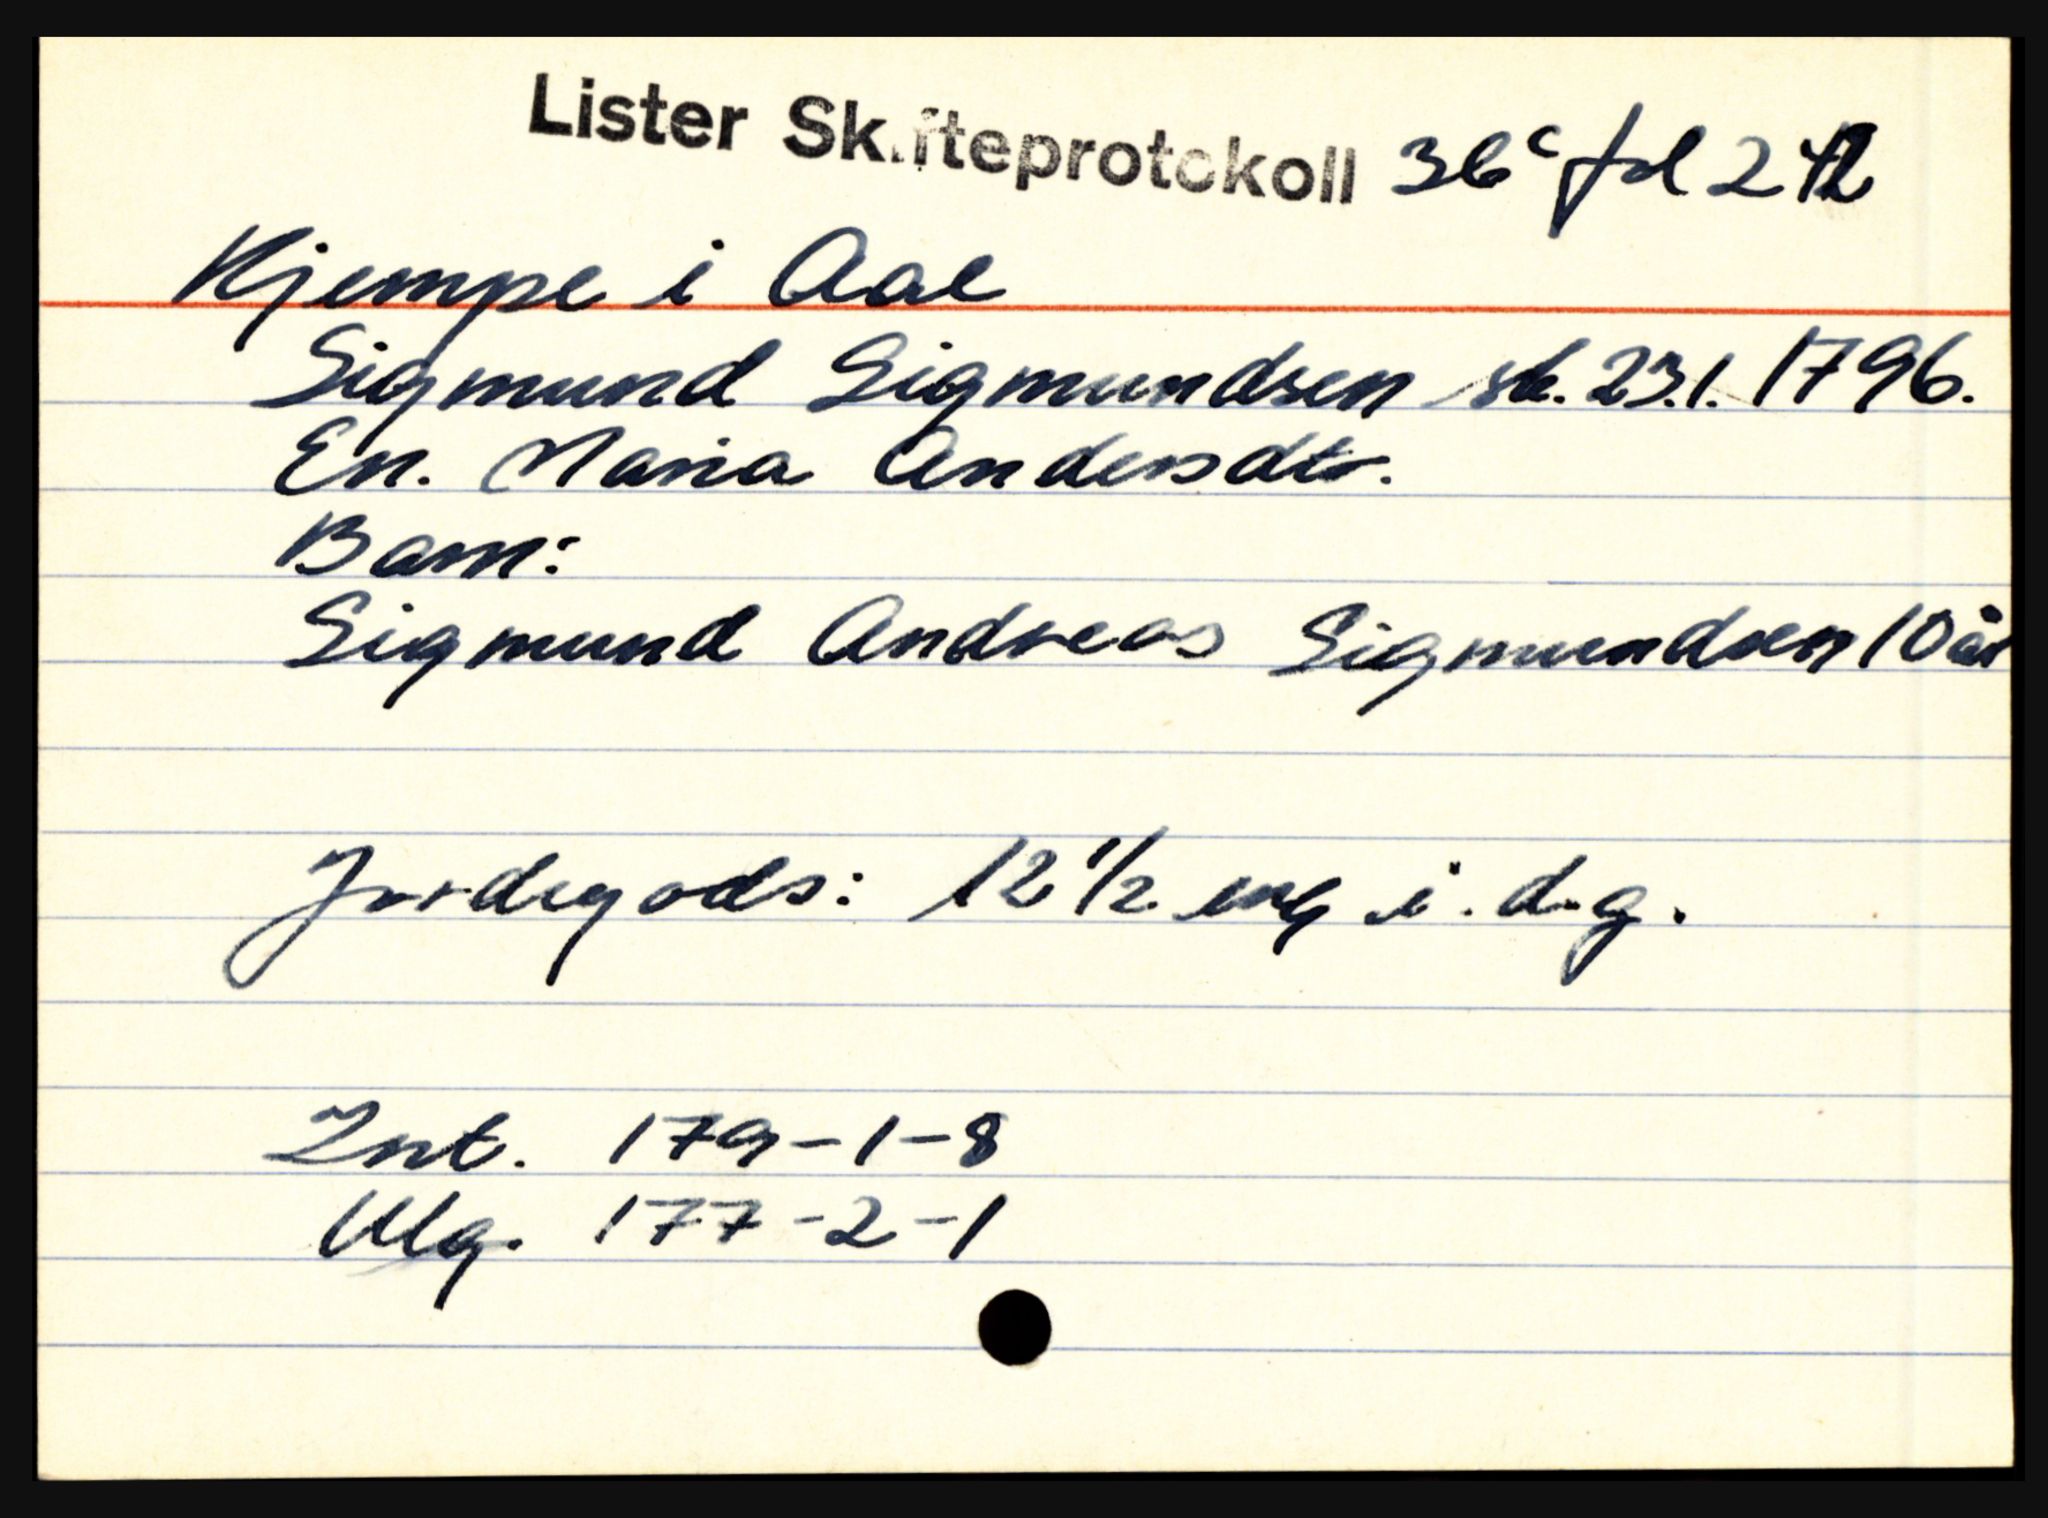 Lister Skifteprotokoll 36c fol 242
Kjempe i Aal
Sigmund Sigmundsen sk. 23.1.1796.
En. Maria Andersdtr.
Barn:
Sigmund Andreas Sigmundsen 10 år
Jordegods: 12 1/2 eng i. d.g.
Int. 179-1-8
Ulg. 177-2-1